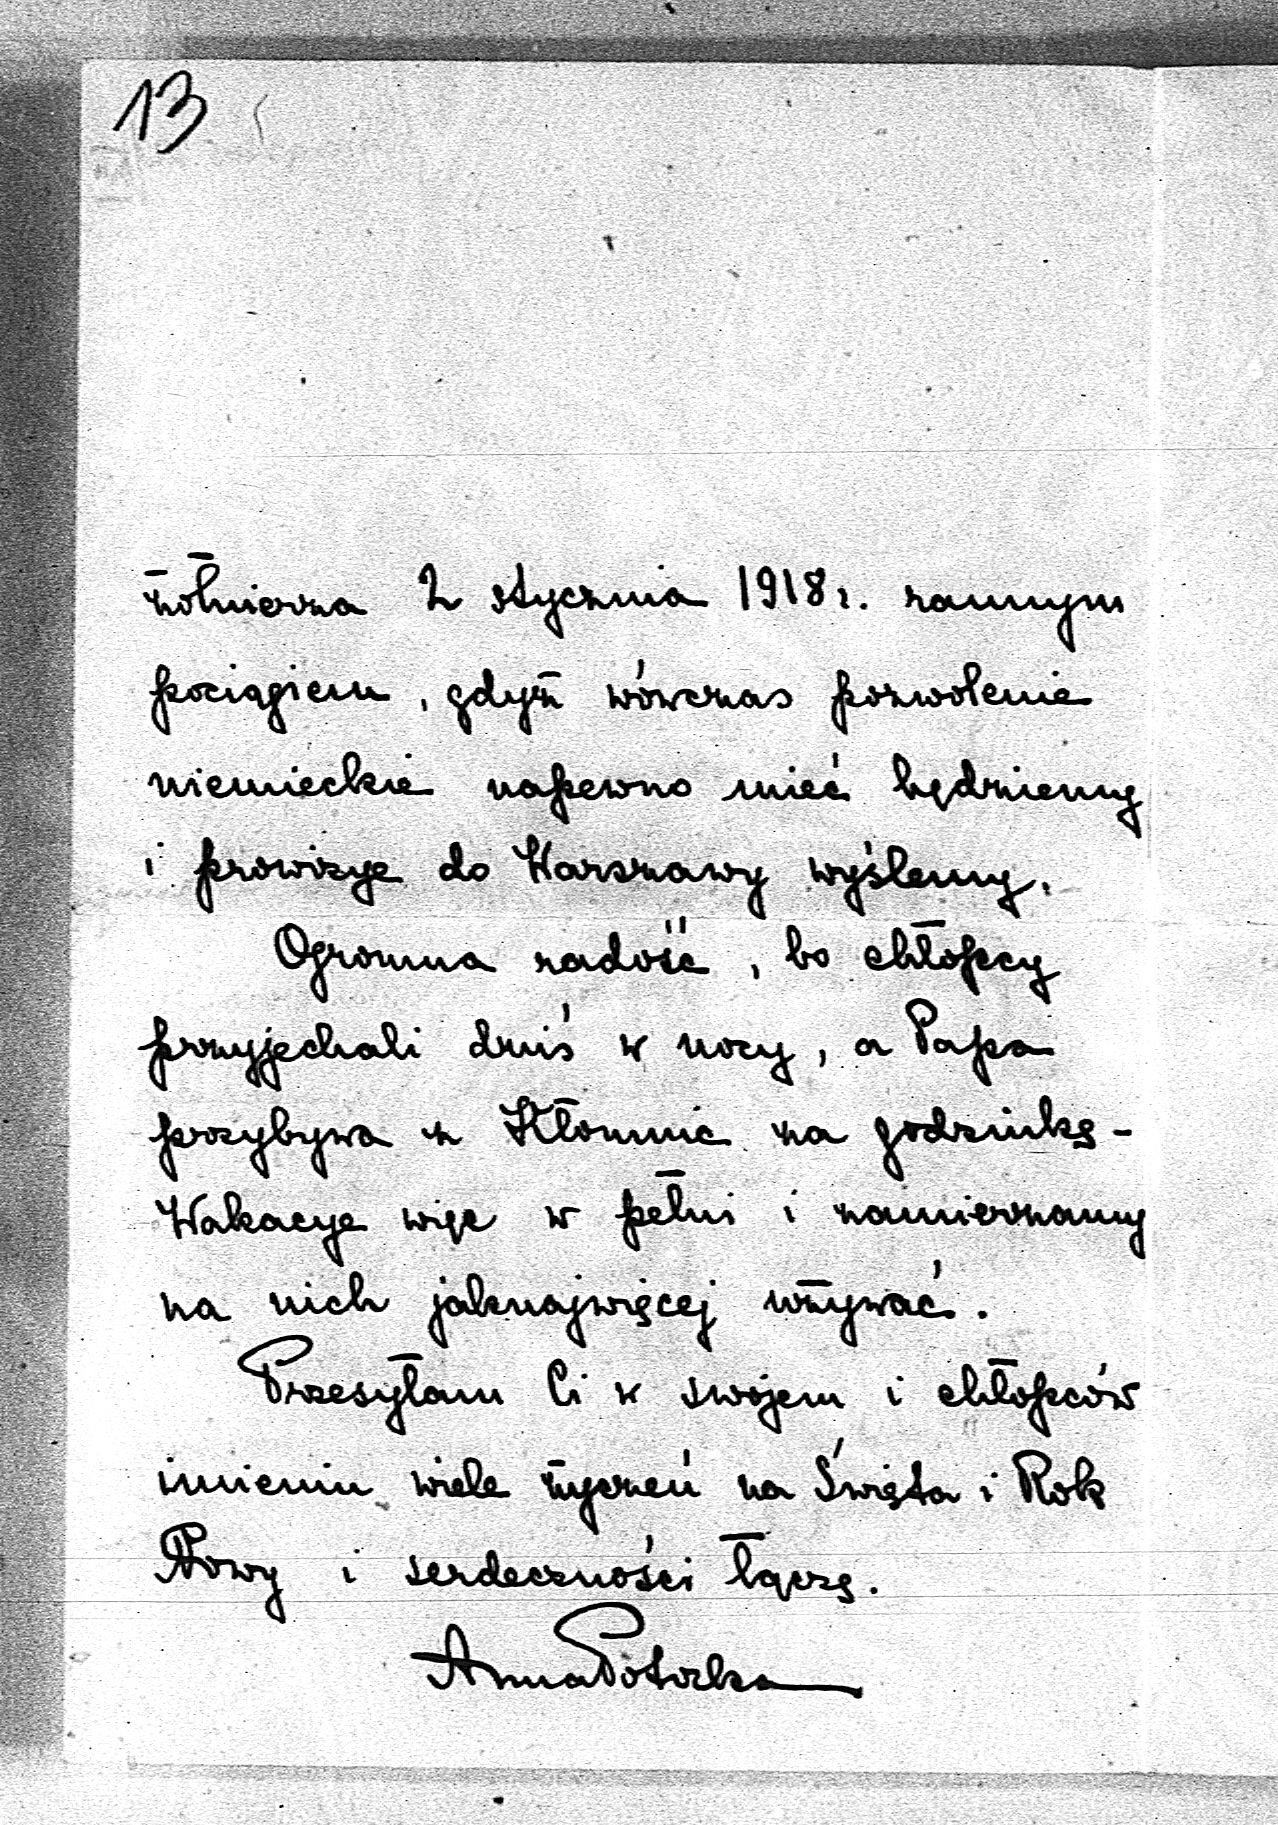 13
żołnierza 2 stycznia 1918 r. rannym
pociągiem, gdyż wówczas pozwolenie
niemieckie napewno mieć będziemy
i prowizye do Warszawy wyślemy.
Ogromna radość, bo chłopcy
przyjechali dziś w nocy, a Papa
przybywa z Kłomnic za godzinkę -
Wakacye więc w pełni i zamierzamy
na nich jaknajwięcej używać.
Przesyłam Ci w swojem i chłopców
imieniu wiele życzeń na Święta i Rok
Nowy i serdeczności łączę.
Anna Potocka